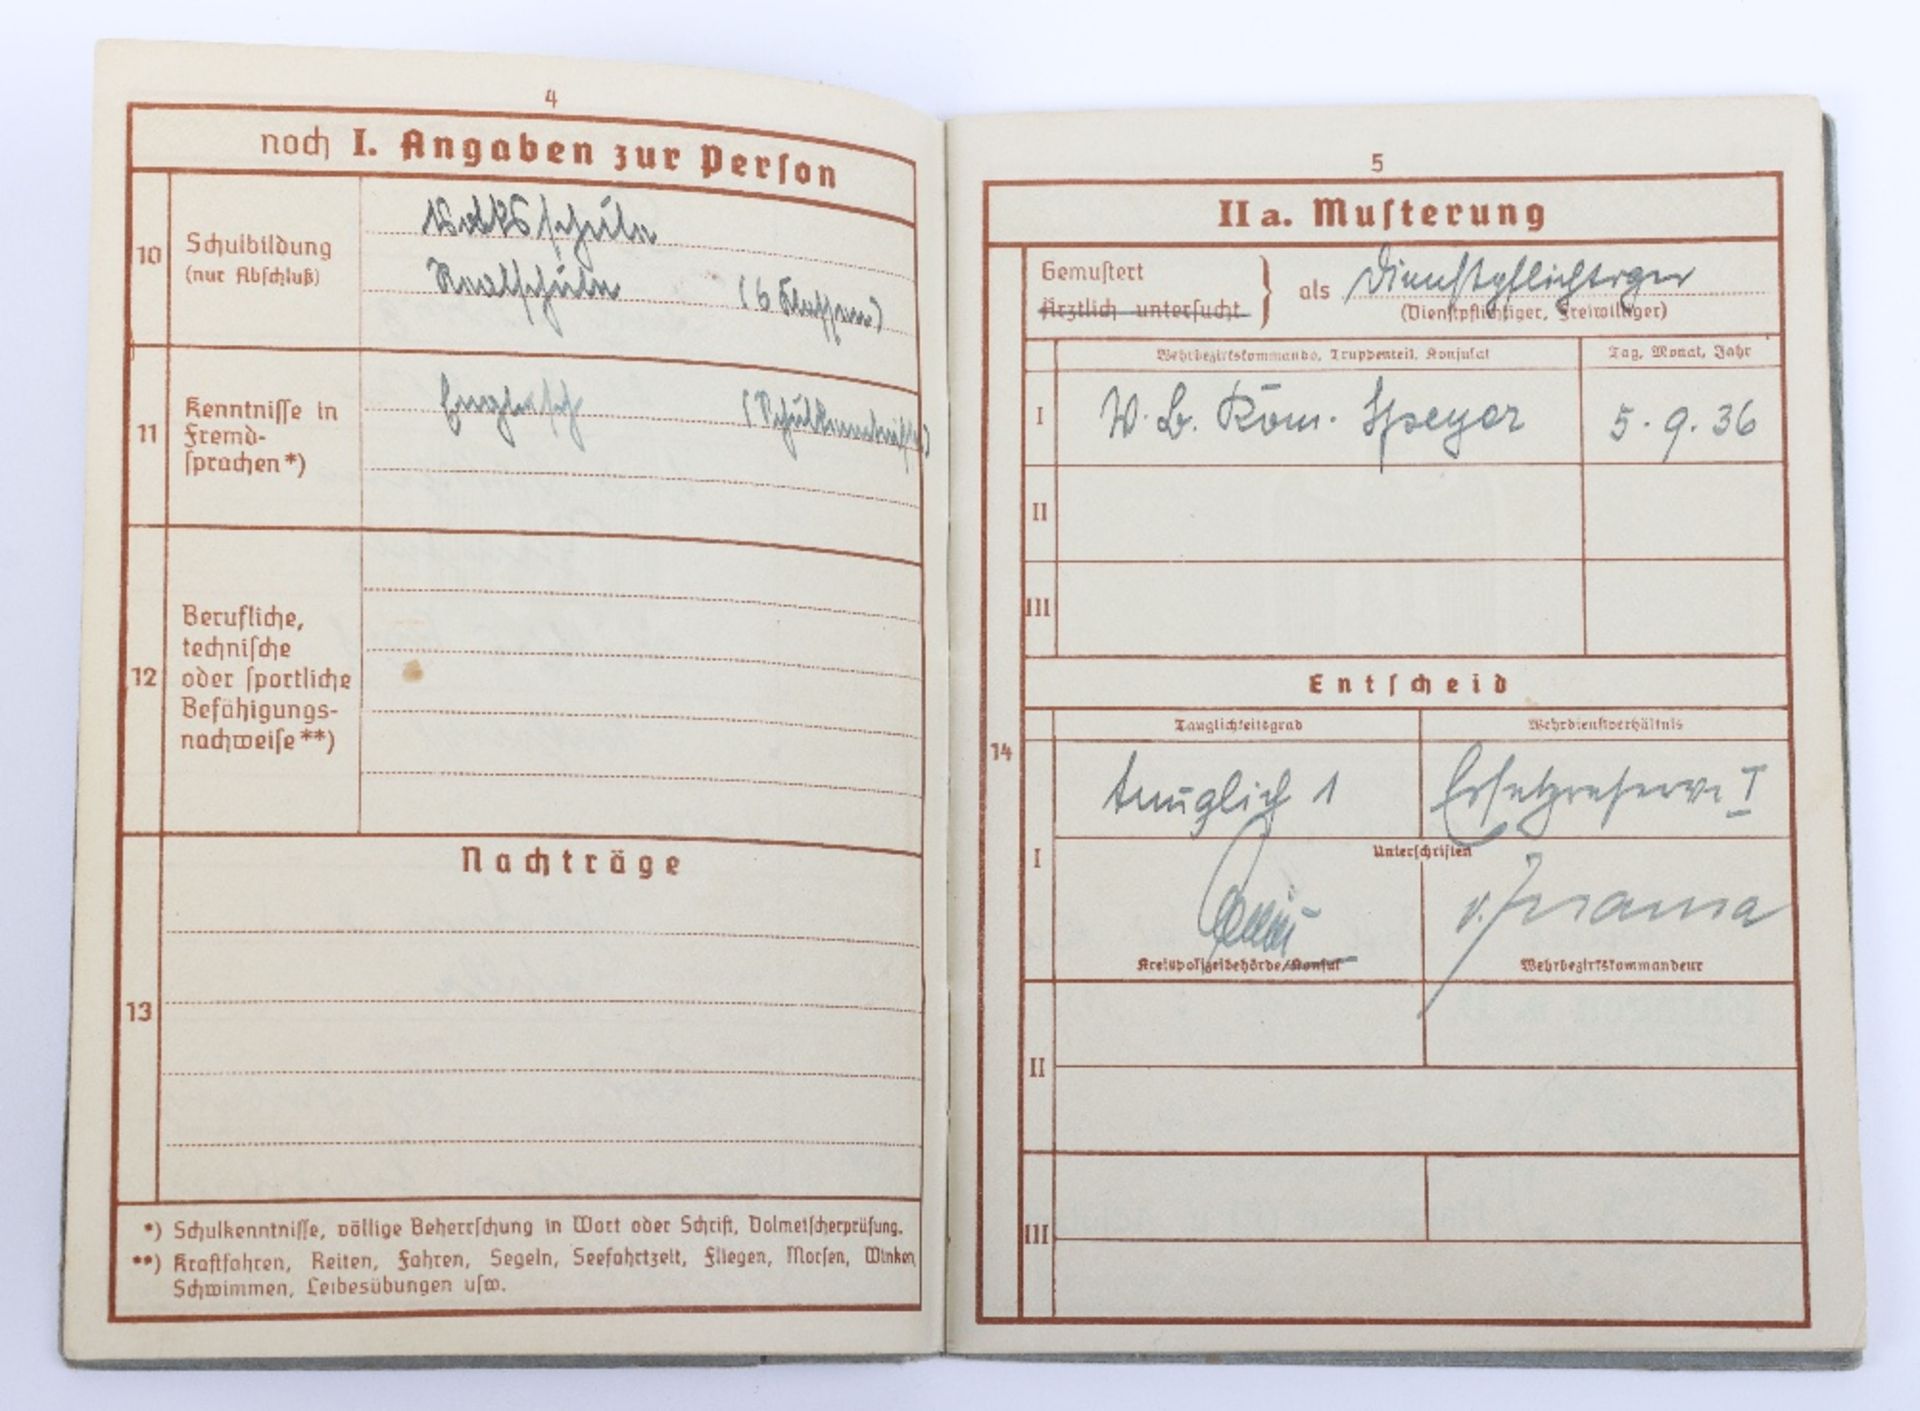 4
noch I. Angaben zur Person
10
Schulbildung
(nur Abschluß)
Volksschule
Realschule (6 Klassen)
11
Kenntnisse in
Fremd-
sprachen*)
Englisch (Schulkenntnisse)
12
Berufliche,
technische
oder sportliche
Befähigungs-
nachweise**)
13
Nachträge
*) Schulkenntnisse, völlige Beherrschung in Wort oder Schrift, Dolmetscherprüfung.
**) Kraftfahren, Reiten, Fahren, Segeln, Seefahrtzeit, Fliegen, Morsen, Winken,
Schwimmen, Leibesübungen usw.
5
IIa. Musterung
Gemustert
Ärztlich untersucht
als Dienstpflichtiger
(Dienstpflichtiger, Freiwilliger)
Wehrbezirkskommando, Truppenteil, Konsulat Tag, Monat, Jahr
I W. B. Kom. Speyer 5.9.36
II
III
Entscheid
14
Tauglichkeitsgrad Wehrdienstverhältnis
tauglich 1 Ersatzreserve I
I
Unterschriften
Kreispolizeibehörde/Konsul Wehrbezirkskommandeur
II
III